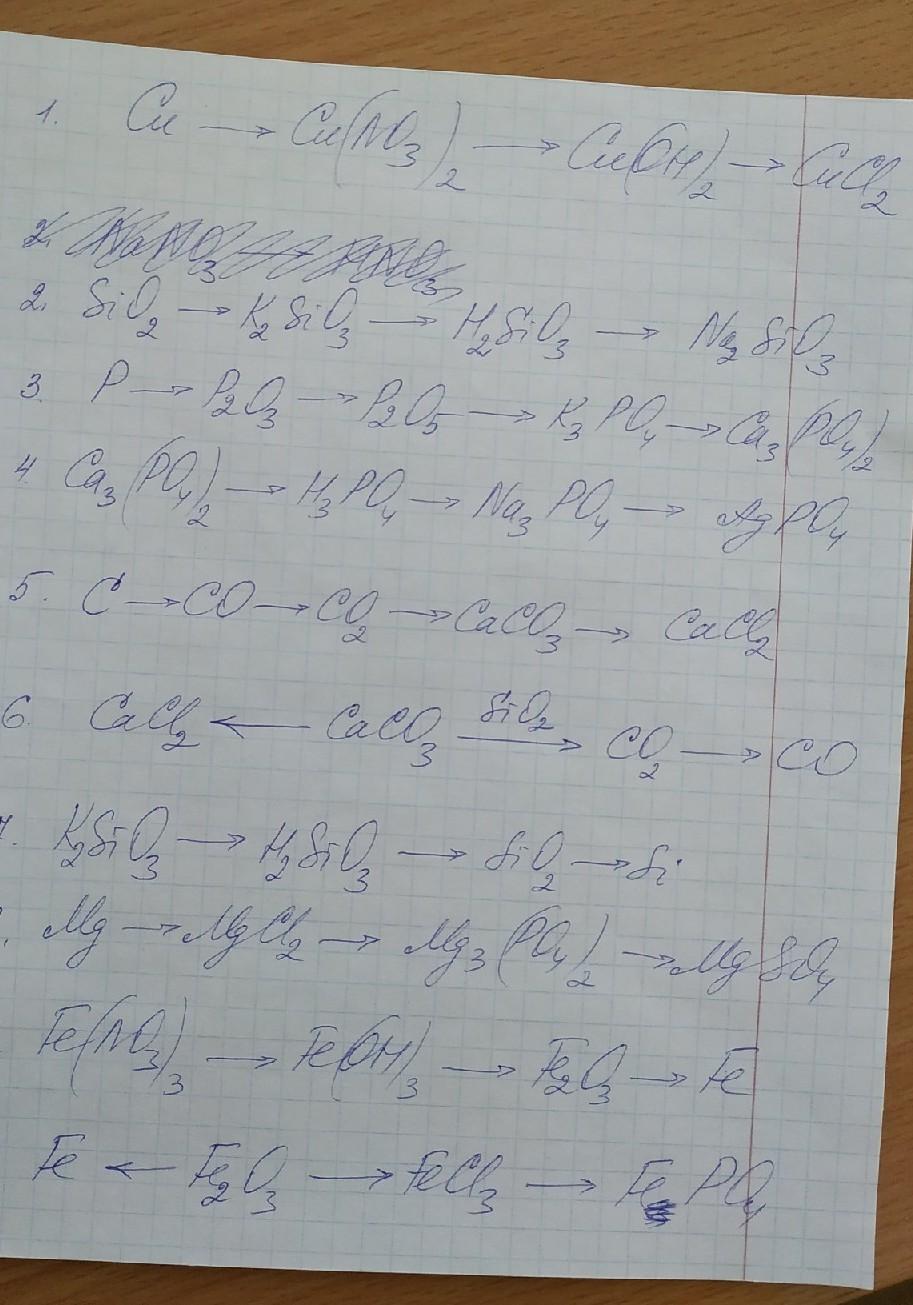 1. Cu → Cu(NO₃)₂ → Cu(OH)₂ → CuCl₂
2. NaNO₃ HNO₃
2. SiO₂ → K₂SiO₃ → H₂SiO₃ → Na₂SiO₃
3. P → P₂O₃ → P₂O₅ → K₃PO₄ → Ca₃(PO₄)₂
4. Ca₃(PO₄)₂ → H₃PO₄ → Na₃PO₄ → AgPO₄
5. C → CO → CO₂ → CaCO₃ → CaCl₂
6. CaCl₂ ← CaCO₃ →SiO₂ CO₂ → CO
7. K₂SiO₃ → H₂SiO₃ → SiO₂ → Si
. Mg → MgCl₂ → Mg₃(PO₄)₂ → MgSO₄
Fe(NO₃)₃ → Fe(OH)₃ → Fe₂O₃ → Fe
Fe ← Fe₂O₃ → FeCl₃ → FePO₄